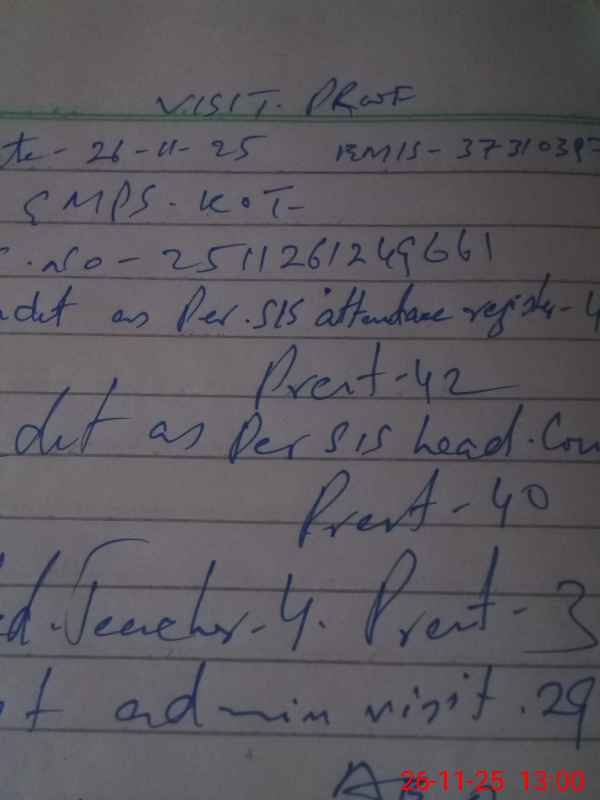 VISIT. PROOF
te- 26-11-25 EMIS- 3731039
GMPS. KOT
.No- 2511261249661
det as Per. SIS attendance register- 4
Prent-42
det as Per SIS head. Cou
Prent- 40
d. Teacher- 4. Prent- 3
t admin visit. 29
26-11-25 13:00